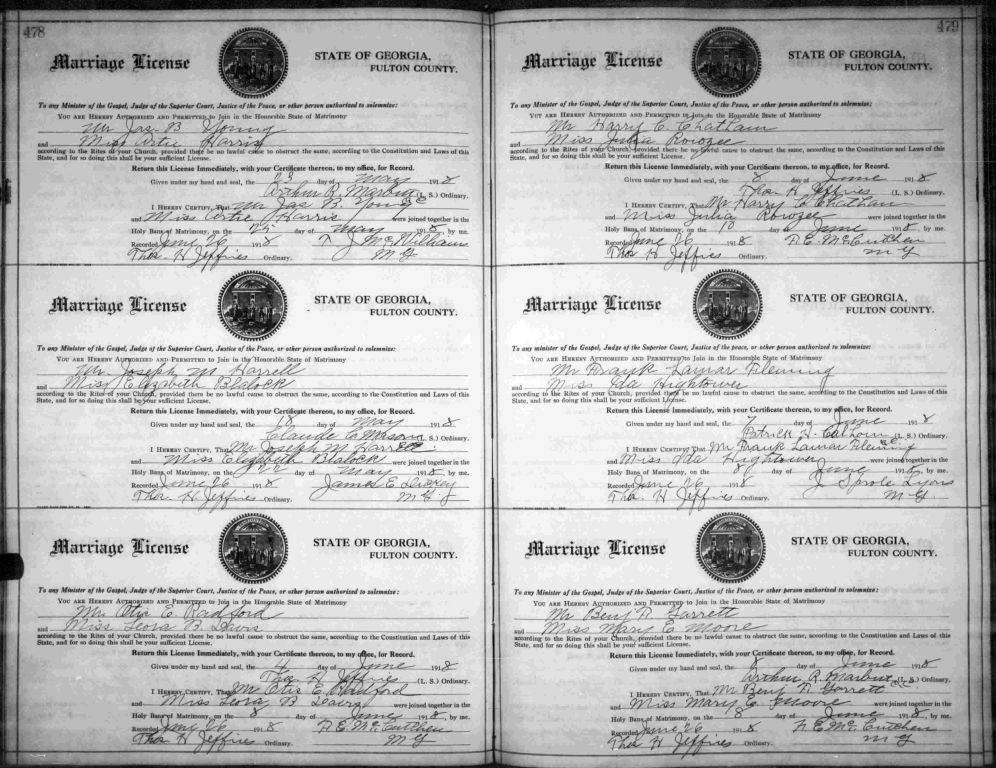 478
Marriage License
STATE OF GEORGIA,
FULTON COUNTY.
To any Minister of the Gospel, Judge of the Superior Court, Justice of the Peace, or other person authorized to solemnize:
YOU ARE HEREBY AUTHORIZED AND PERMITTED to Join in the Honorable State of Matrimony
Mr Jas B Young
and Miss Artie Harris
according to the Rites of your Church, provided there be no lawful cause to obstruct the same, according to the Constitution and Laws of this
State, and for so doing this shall be your sufficient License.
Return this License Immediately, with your Certificate thereon, to my office, for Record.
Given under my hand and seal, the day of May 1918
Arthur R. Marbut (L. S.) Ordinary.
I HEREBY CERTIFY, That Mr Jas B. Young
and Miss Artie Harris were joined together in the
Holy Bans of Matrimony, on the 25 day of May 1918, by me.
Recorded June 26 1918 T J McWilliams
Thos H Jeffries Ordinary. M G
Marriage License
STATE OF GEORGIA,
FULTON COUNTY.
To any Minister of the Gospel, Judge of the Superior Court, Justice of the Peace, or other person authorized to solemnize:
YOU ARE HEREBY AUTHORIZED AND PERMITTED to Join in the Honorable State of Matrimony
Mr. Joseph M Harrell
and Miss Elizabeth Blalock
according to the Rites of your Church, provided there be no lawful cause to obstruct the same, according to the Constitution and Laws of this
State, and for so doing this shall be your sufficient License.
Return this License Immediately, with your Certificate thereon, to my office, for Record.
Given under my hand and seal, the 18 day of May 1918
Claude C Mason (L. S.) Ordinary.
I HEREBY CERTIFY, That Mr Joseph M Harrell
and Miss Elizabeth Blalock were joined together in the
Holy Bans of Matrimony, on the day of May 1918, by me.
Recorded June 26 1918 James E
Thos H Jeffries Ordinary. M G
Marriage License
STATE OF GEORGIA,
FULTON COUNTY.
To any Minister of the Gospel, Judge of the Superior Court, Justice of the Peace, or other person authorized to solemnize:
YOU ARE HEREBY AUTHORIZED AND PERMITTED to Join in the Honorable State of Matrimony
Mr Otis E Radford
and Miss Leora B Davis
according to the Rites of your Church, provided there be no lawful cause to obstruct the same, according to the Constitution and Laws of this
State, and for so doing this shall be your sufficient License.
Return this License Immediately, with your Certificate thereon, to my office, for Record.
Given under my hand and seal, the 4 day of June 1918
Thos H Jeffries (L. S.) Ordinary.
I HEREBY CERTIFY, That Mr Otis E Radford
and Miss Leora B Davis were joined together in the
Holy Bans of Matrimony, on the 8 day of June 1918, by me.
Recorded June 26 1918 A. E. McCutchen
Thos H Jeffries Ordinary. M G
479
Marriage License
STATE OF GEORGIA,
FULTON COUNTY.
To any Minister of the Gospel, Judge of the Superior Court, Justice of the Peace, or other person authorized to solemnize:
YOU ARE HEREBY AUTHORIZED AND PERMITTED to Join in the Honorable State of Matrimony
Mr Harry C. Chatham
and Miss Julia Rowzee
according to the Rites of your Church, provided there be no lawful cause to obstruct the same, according to the Constitution and Laws of this
State, and for so doing this shall be your sufficient License.
Return this License Immediately, with your Certificate thereon, to my office, for Record.
Given under my hand and seal, the 8 day of June 1918
Thos H Jeffries (L. S.) Ordinary.
I HEREBY CERTIFY, That Mr Harry C Chatham
and Miss Julia Rowzee were joined together in the
Holy Bans of Matrimony, on the 10 day of June 1918, by me.
Recorded June 26 1918 A. E. McCutchen
Thos H Jeffries Ordinary. M G
Marriage License
STATE OF GEORGIA,
FULTON COUNTY.
To any minister of the Gospel, Judge of the Superior Court, Justice of the Peace, or other person authorized to solemnize:
YOU ARE HEREBY AUTHORIZED AND PERMITTED to Join in the Honorable State of Matrimony
Mr Frank Lamar Fleming
and Miss Ida Hightower
according to the Rites of your Church, provided there be no lawful cause to obstruct the same, according to the Constitution and Laws of this
State, and for so doing this shall be your sufficient License.
Return this License Immediately, with your Certificate thereon, to my office, for Record.
Given under my hand and seal, the 7 day of June 1918
Patrick H. Calhoun (L. S.) Ordinary.
I HEREBY CERTIFY, That Mr Frank Lamar Fleming
and Miss Ida Hightower were joined together in the
Holy Bans of Matrimony, on the 8 day of June 1918, by me.
Recorded June 26 1918 J Sprole Lyons
Thos H Jeffries Ordinary. M G
Marriage License
STATE OF GEORGIA,
FULTON COUNTY.
To any Minister of the Gospel, Judge of the Superior Court, Justice of the Peace, or other person authorized to solemnize:
YOU ARE HEREBY AUTHORIZED AND PERMITTED to Join in the Honorable State of Matrimony
Mr Benj A Garrett
and Miss Mary E Moore
according to the Rites of your Church, provided there be no lawful cause to obstruct the same, according to the Constitution and Laws of this
State, and for so doing this shall be your sufficient License.
Return this License Immediately, with your Certificate thereon, to my office, for Record.
Given under my hand and seal, the 8 day of June 1918
Arthur R. Marbut (L. S.) Ordinary.
I HEREBY CERTIFY, That Mr Benj A Garrett
and Miss Mary E Moore were joined together in the
Holy Bans of Matrimony, on the 8 day of June 1918, by me.
Recorded June 26 1918 A. E. McCutchen
Thos H Jeffries Ordinary. M G